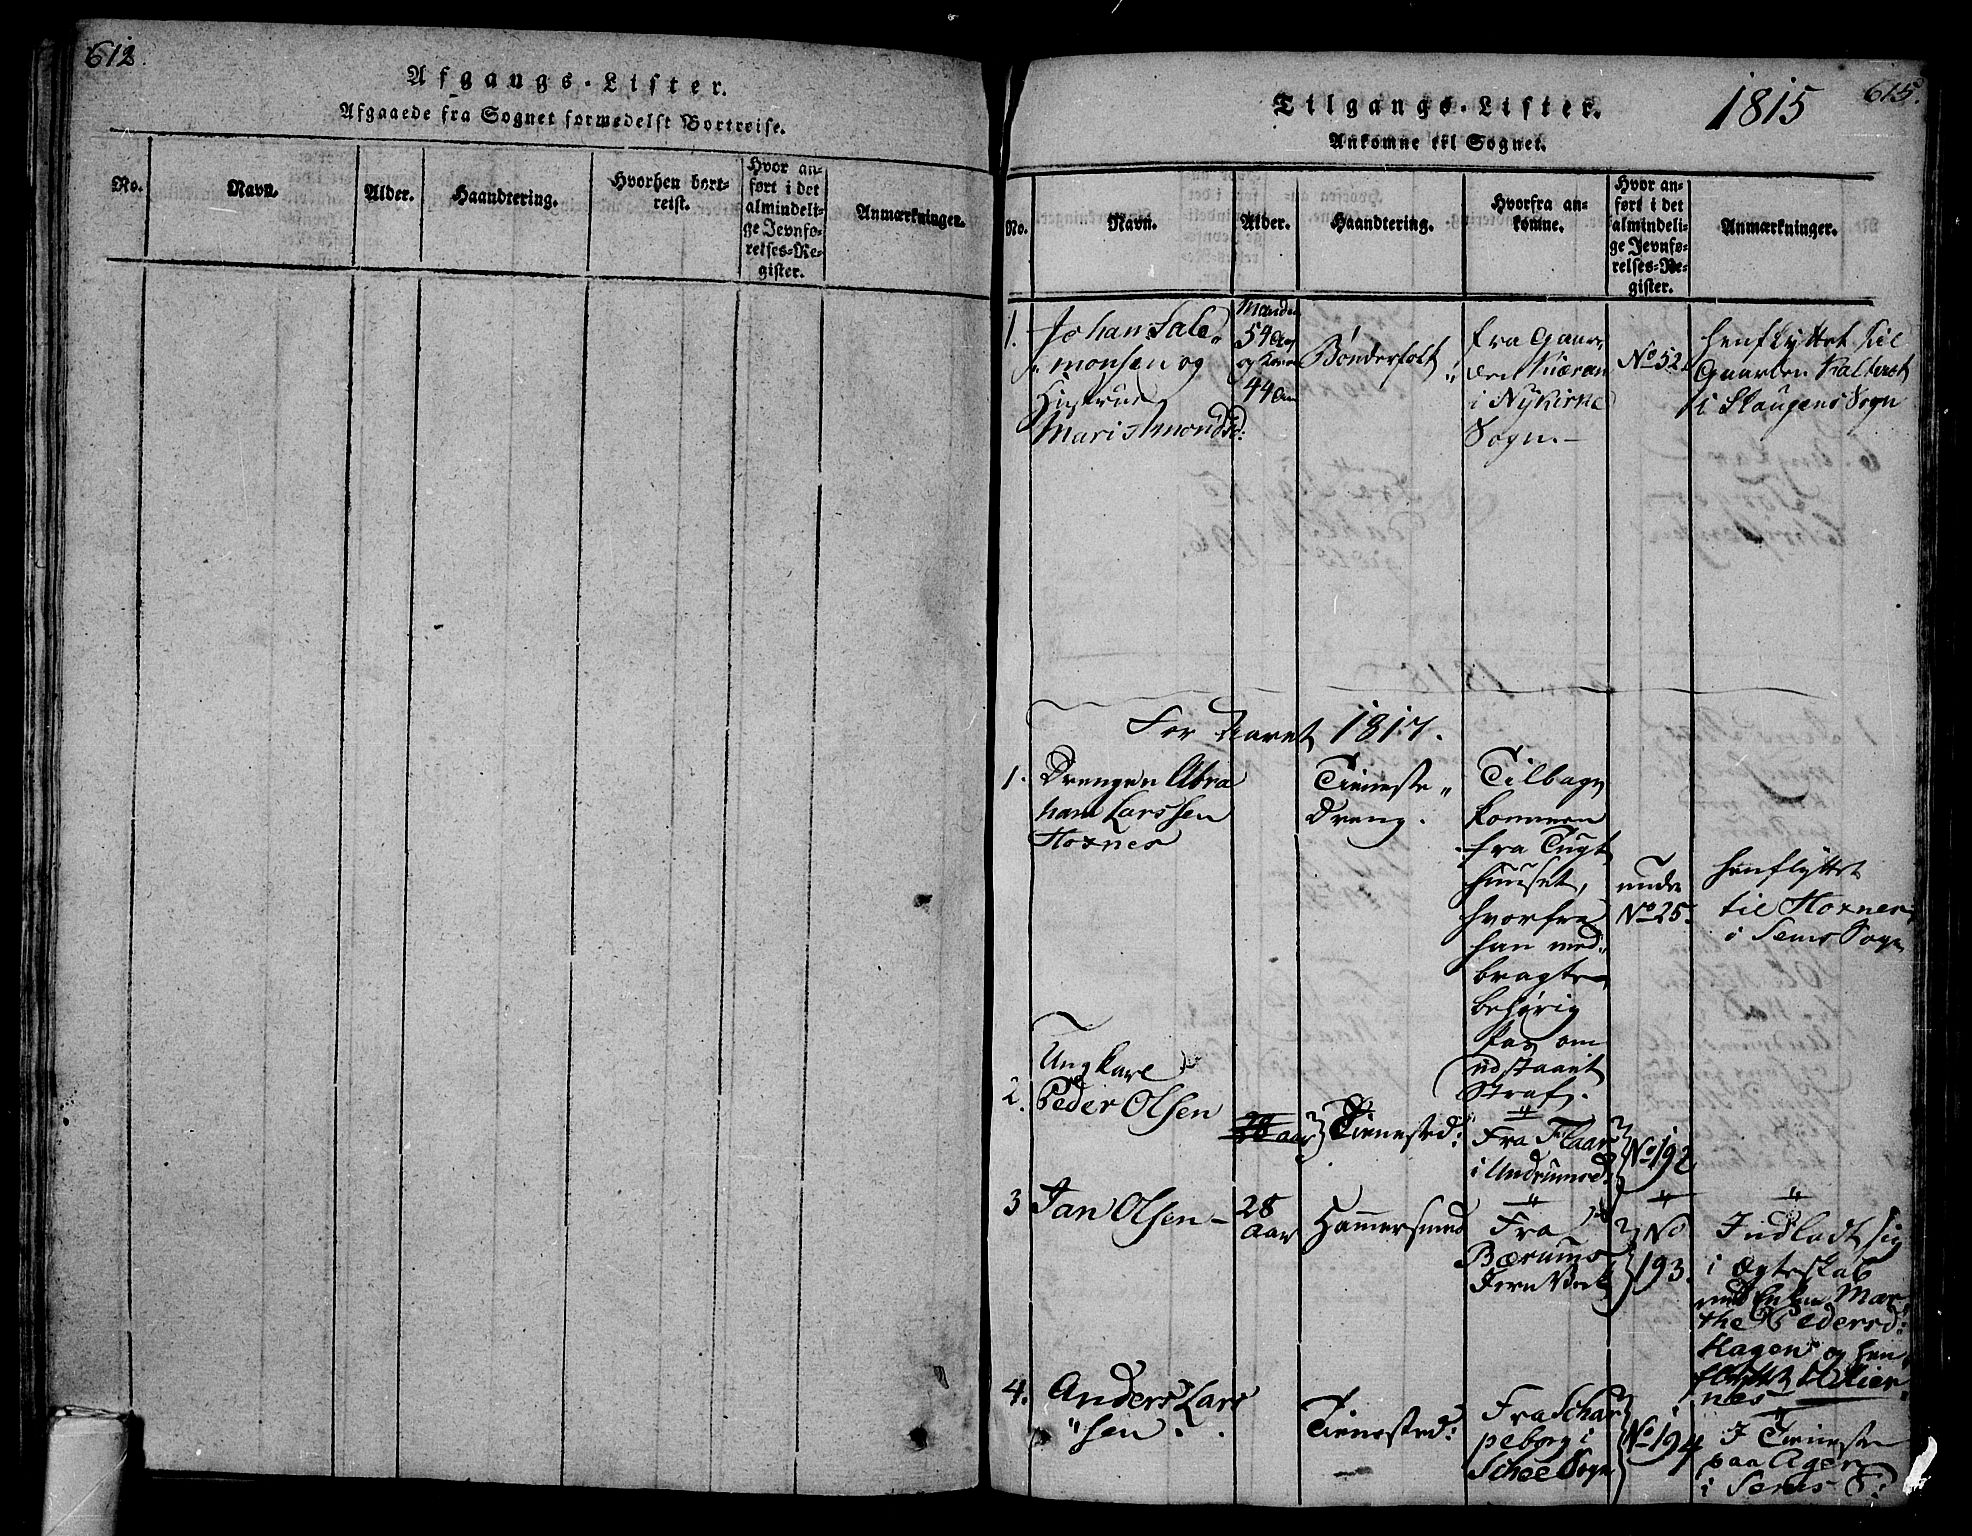 612.
Afgangs-Lister.
Afgaaede fra Sognet formedelst Bortreise.
No.
Navn.
Alder.
Haandtering.
Hvorhen bort-
reist.
Hvor an-
ført i det
almindeli-
ge Jevnfø-
relses-Re-
gister.
Anmærkninger.
615.
1815
Tilgangs-Lister.
Ankomne til Sognet.
No.
Navn.
Alder.
Haandtering.
Hvorfra an-
komne.
Hvor an-
ført i det
almindeli-
ge Jevnfø-
relses-Re-
gister.
Anmærkninger.
1.
Johan Sale„
„monsen og
Hustrue
Mari Amondsd:
Manden
54 Aar
og Konen
44 Aar
Bønderfolk
fra Gaar„
den
i Nykirke
Sogn.—
No 52.
henflyttet til
Gaarden
i Slaugens Sogn
For Aaret 1817.
1.
Drengen Abra
ham Larssen
Hornes
Tieneste„
Dreng.
Tilbage
kommen
fra Tugt
huuset,
hvorfra
han med„
bragte
behørig
Pas om
udstaaet
Straf.
under
No 25.
henflyttet
til Hornes
i Sems Sogn
2.
Ungkarl
Peder Olsen
28 aar
Tienested:
Fra
i
No 192
3
Jan Olsen —
28
Aar
Hammersmed
Fra
Bærums
Jern Verk
No
193.
Indladt sig
i Ægteskab
med Enken Mar„
the Pedersd:
Hagen og hen„
flyttet
4.
Anders Lars
„sen.
Tienested:
Fra Schar
peborg i
Schee Sogn
No 194
I Tieneste
paa Agen
i Sems S: